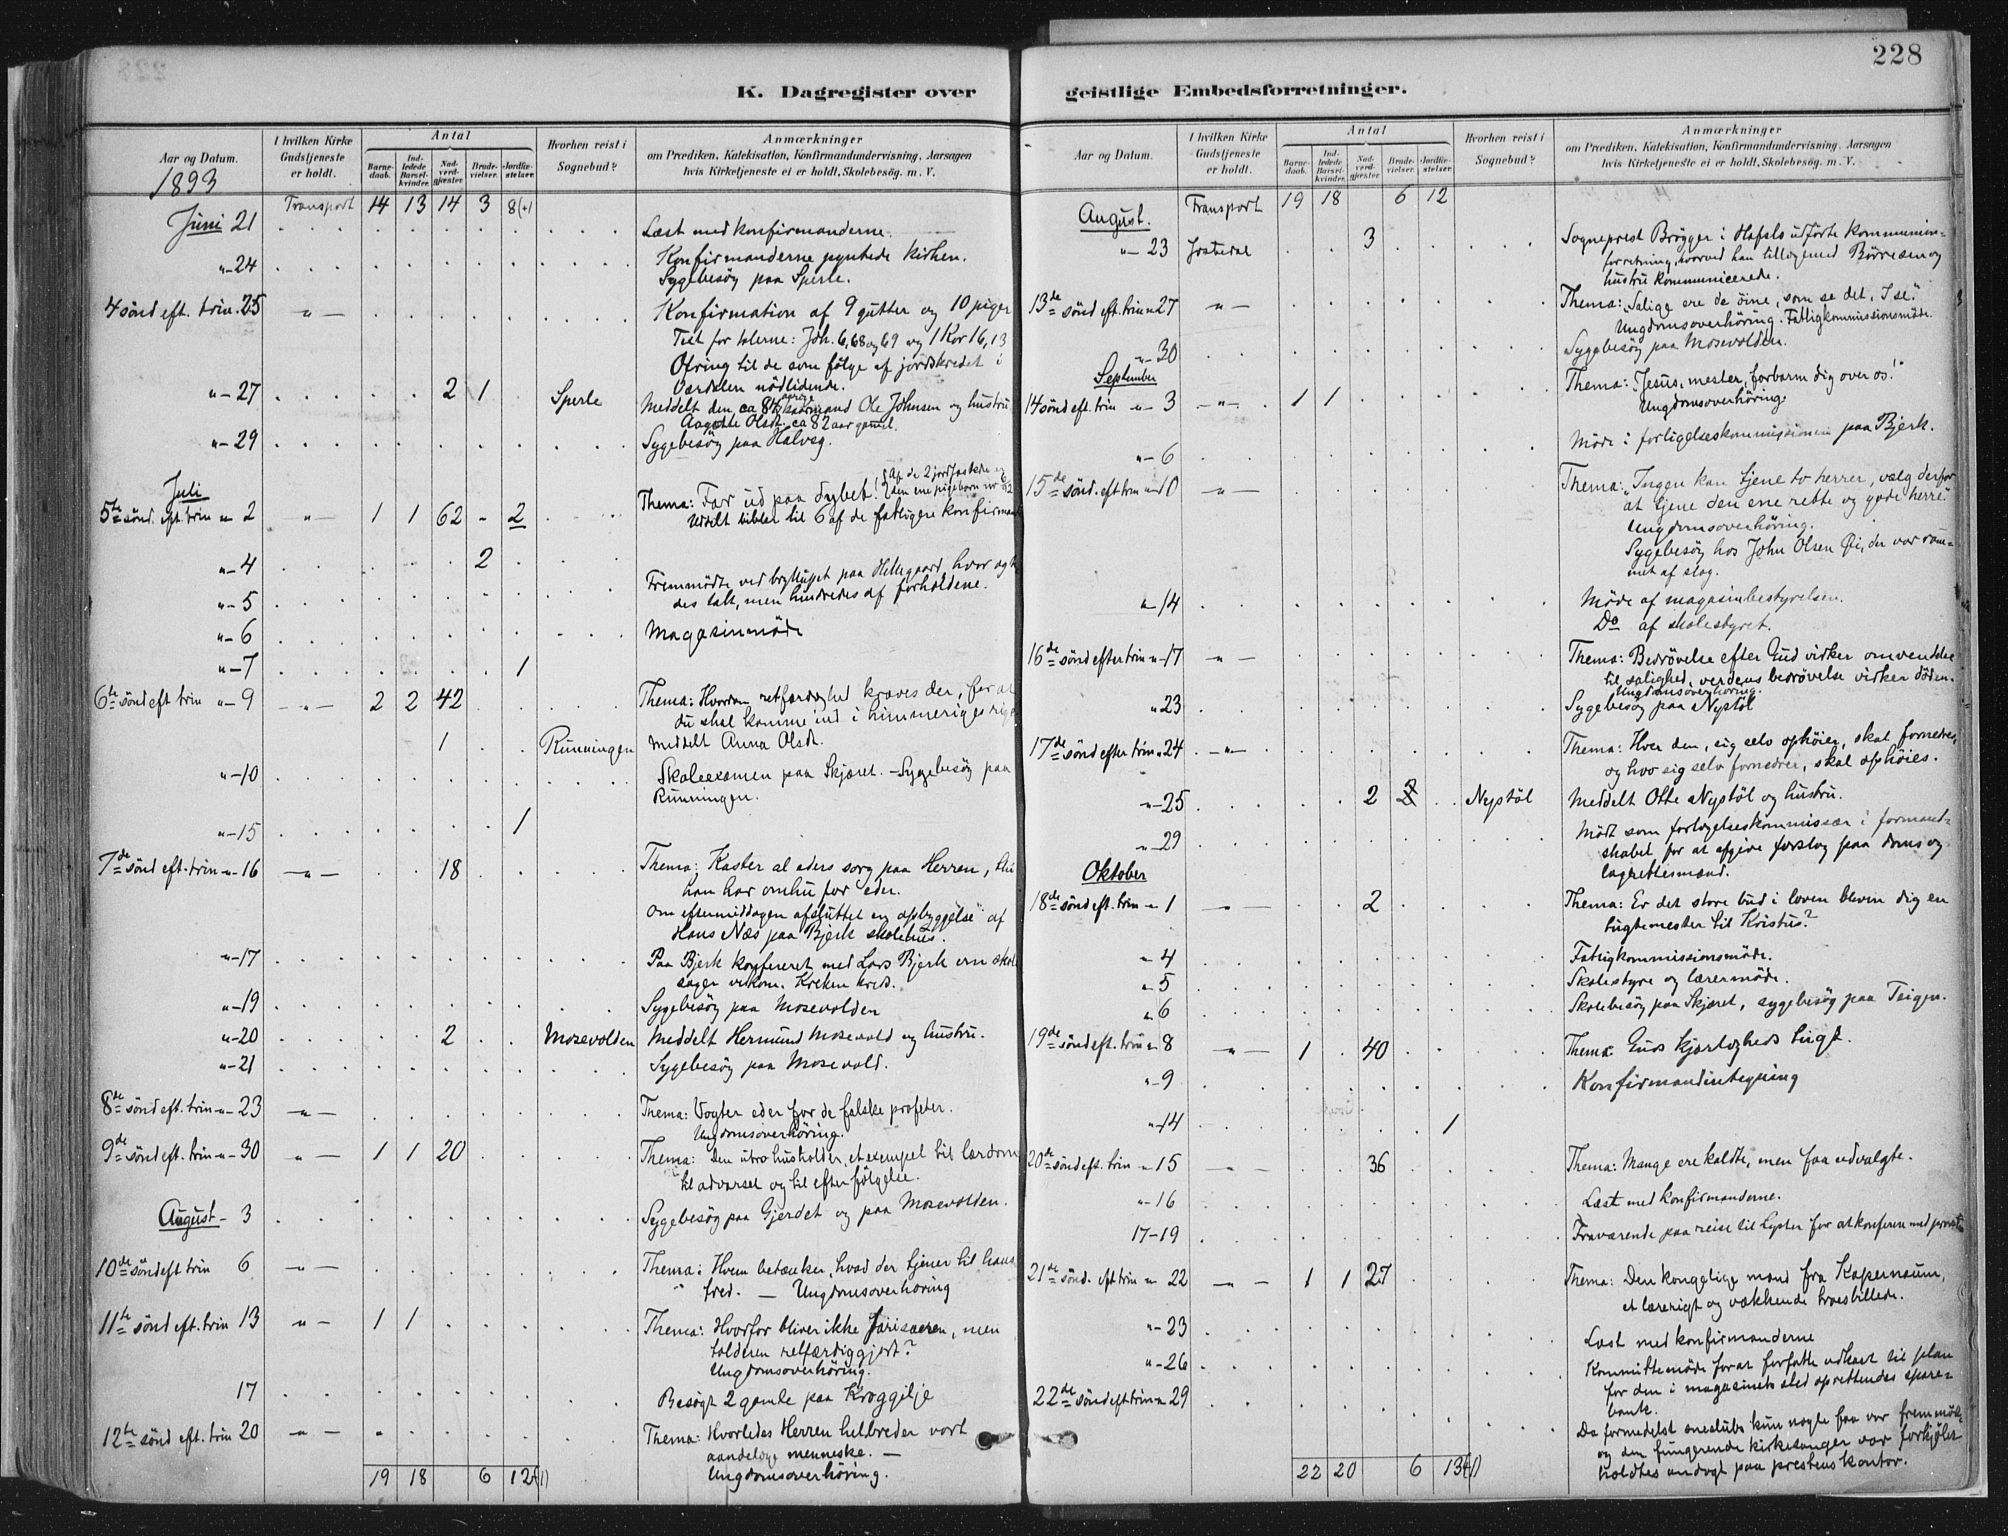 228
K. Dagregister over
geistlige Embedsforretninger.
Aar og Datum.
I hvilken Kirke Gudstjeneste er holdt.
Antal
Barne-daab.
Ind-ledede Barsel-kvinder.
Nad-verd-gjæster.
Brude-vielser.
Jordfæ-stelser.
Hvorhen reist i Sognebud?
Anmærkninger
om Prædiken, Katekisation, Konfirmandundervisning, Aarsagen
hvis Kirketjeneste ei er holdt, Skolebesög. m. V.
1893
Transport 14 13 14 3 8(+)
Juni 21 Læst med konfirmanderne.
"-24 Konfirmanderne pyntede kirken.
Sygebesög paa Sperle.
4 sönd eft. trin. 25 "- Konfirmation af 9 gutter og 10 piger
Text for talerne: Joh. 6, 68 og 69 og 1 Kor 16, 13
Ofring til de som fölge af jordskredet i
Værdalen nödlidende.
"-27 2 1 Sperle Meddelt den ca 84 aarige kaarmand Ole Johnsen og hustru
Aagotte Olsdt. ca 82 aar gammel.
"-29 Sygebesög paa Halveg.
Juli
5te sönd. eft. trin "- 2 "- 1 1 62 - 2 Thema: Far ud paa dybet!
Uddelt bibler til 6 af de fattigere konfirmand
"-4 2
"-5 Fremmödte ved bryllupet paa Hellegaard, hvor agt
des talt, men hindredes af forholdene.
"-6 Magasinmöde
"-7 1
6te sönd eft trin "- 9 -"- 2 2 42 Thema: Hvordan retfærdighed kræves der, for at
du skal komme ind i himmeriges rige
1 Runningen Meddelt Anna Olsdt.
"-10 Skoleexamen paa Skjæret. - Sygebesög paa
Runningen.
"-15 1
7de sönd eft. trin "- 16 -"- 18 Thema: Kaster al eders sorg paa Herren, thi
han har omhu for eder.
Om eftermiddagen afsluttet en opbyggelse af
Hans Næs paa Bjerk skolehus.
"-17 Paa Bjerk konfereret med Lars Bjerk om skole
sager vedkom. Kreken kred.
"-19 Sygebesög paa Mosevolden
"-20 2 Mosevolden Meddelt Hermund Mosevold og hustru.
"-21 Sygebesög paa Mosevold.
8de sönd eft. trin "- 23 -"- Thema: Vogter eder for de falske profeter.
Ungdomsoverhöring.
9de sönd eft. trin "- 30 "- 1 1 20 Thema: Den utro husholder, et exempel til lærdom
til advarsel og til efterfölgelse.
August - 3 Sygebesög paa Gjerdet og paa Mosevolden.
10de sönd eft trin 6 -"- Thema: Hvem betænker, hvad der tjener til hans
fred. - Ungdomsoverhöring
11te sönd eft. trin 13 "- 1 1 Thema: Hvorfor bliver ikke farisæeren, men
tolderen retfærdiggjort?
Ungdomsoverhöring.
17 Besögt 2 gamle paa Kroggilje
12te sönd eft. trin 20 -"- Thema: Hvorledes Herren helbreder vort
aandelige menneske. -
Ungdomsoverhöring.
19 18 6 12(+1)
Aar og Datum.
I hvilken Kirke Gudstjeneste er holdt.
Antal
Barne-daab.
Ind-ledede Barsel-kvinder.
Nad-verd-gjæster.
Brude-vielser.
Jordfæ-stelser.
Hvorhen reist i Sognebud?
Anmærkninger
om Prædiken, Katekisation, Konfirmandundervisning, Aarsagen
hvis Kirketjeneste ei er holdt, Skolebesög. m. V.
Transport 19 18 6 12
August.
"- 23 Jostedal 3 Sogneprest Brögger i Hafslo udförte kommunion-
forretning, hvorved han tilligemed Börresen og
hustru kommunicerede.
13de sönd eft. trin "27 "- Thema: "Salige ere de öine, som se det, I se."
Ungdomsoverhöring. Fattigkommissionsmöde.
"-30 Sygebesög paa Mosevolden.
September
14 sönd eft. trin "- 3 -"- 1 1 Thema: "Jesus, mester, forbarm dig over os!"
Ungdomsoverhöring.
"-6 Möde i forligelseskommissionen paa Bjerk.
15de sönd. eft trin "-10 -"- Thema: "Ingen kan tjene to herrer, vælg derfor
at tjene den ene rette og gode herre"
Ungdomsoverhöring.
Sygebesög hos John Olsen Öi, der var ram-
met af slag.
"-14 Möde af magasinbestyrelsen.
Do af skolestyret.
16de sönd efter trin "-17 "- Thema: Bedrövelse efter Gud virker omvendelse
til salighed, verdens bedrövelse virker döden.
Ungdomsoverhöring.
"23 Sygebesög paa Nystöl
17de sönd efter trin "24 -"- Thema: Hver den, sig selv ophöier, skal fornedres,
og hvo sig selv fornedrer, skal ophöies.
"-25 2 2 Nystöl Meddelt Otte Nystöl og hustru.
"-29 Mödt som forligelseskommissær i formand-
skabet for at afgive forslag paa doms og
lagrettesmænd.
Oktober
18de sönd eft. trin "- 1 -"- 2 Thema: Er det store bud i loven bleven dig en
tugtemester til Kristus?
"4 Fattigkommissionsmöde.
"5 Skolestyre og lærermöde.
"6 Skolebesög paa Skjæret, sygebesög paa Teigen.
19de sönd eft. trin "8 "- 1 40 Thema: Guds kjærligheds tugt.
"9 Konfirmandindtegning
"14 1
20de sönd eft. trin "15 -"- 36 Thema: Mange ere kaldte, men faa udvalgte.
"-16 Læst med konfirmanderne.
17-19 Fraværende paa reise til Lyster for at konferere med provsten
21de sönd. eft trin "- 22 -"- 1 1 27 Thema: Den kongelige mand fra Kapernaum,
et lærerigt og vækkende troesbillede.
"-23 Læst med konfirmanderne
"-26 Kommittemöde for at forfatte udkast til plan
for den i magasinets sted oprettendes spare-
bank.
22de sönd eft trin "29 Da formedelst sneslubs kun nogle faa var fremmödt
og den fungerende kirkesanger var forkjölet
holdtes andagt paa prestens kontor.
22 20 6 13(+1)